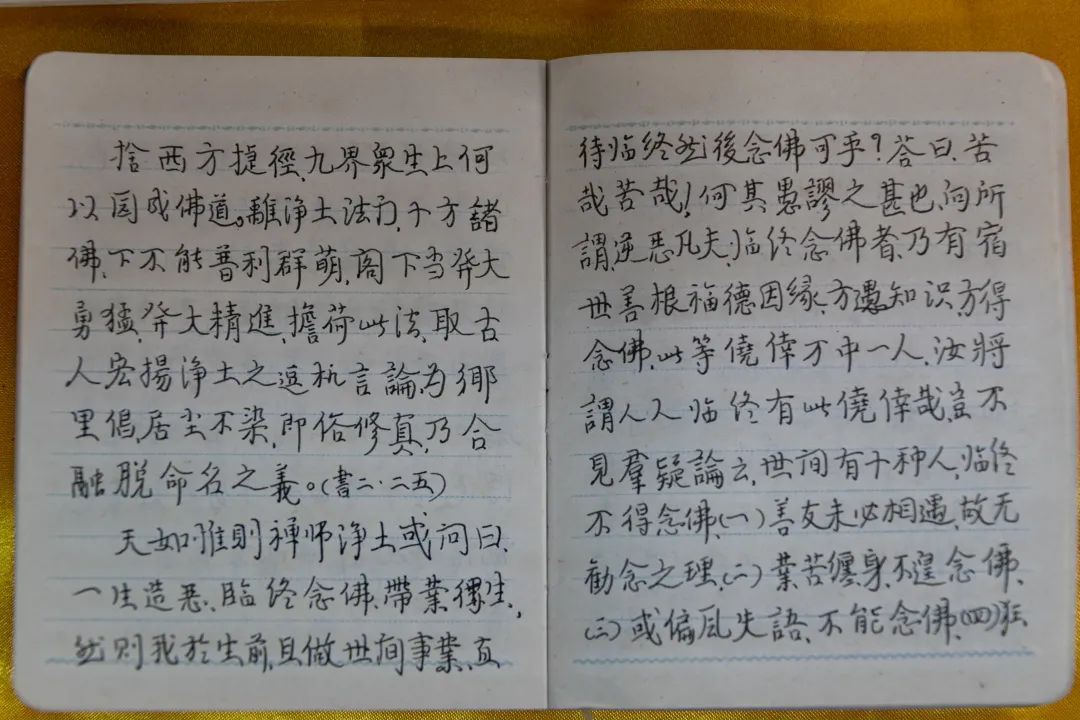 捨西方捷徑、九界衆生上何
以圆成佛道。離浄土法门、十方諸
佛、下不能普利群萌、阁下当発大
勇猛、発大精進、擔荷此法、取古
人宏揚浄土之逗机言論、为郷
里倡、居尘不染、即俗修真、乃合
融脱命名之義。(書二·二五)
天如惟則禅师浄土或问曰、
一生造恶、臨终念佛、帶業得生,
然则我於生前、且做世间事業、直
待临终然後念佛可乎?荅曰、苦
哉苦哉!何其愚謬之甚也、向所
謂、逆恶凡夫、临终念佛者、乃有宿
世善根福德因缘、方遇知识、方得
念佛、此等僥倖万中一人、汝將
謂人人临终有此僥倖哉、豈不
見羣疑論云、世间有十种人、临终
不得念佛、(一)善友未必相遇、故无
勧念之理、(二)業苦缠身、不遑念佛、
(三)或偏风失語、不能念佛、(四)狂